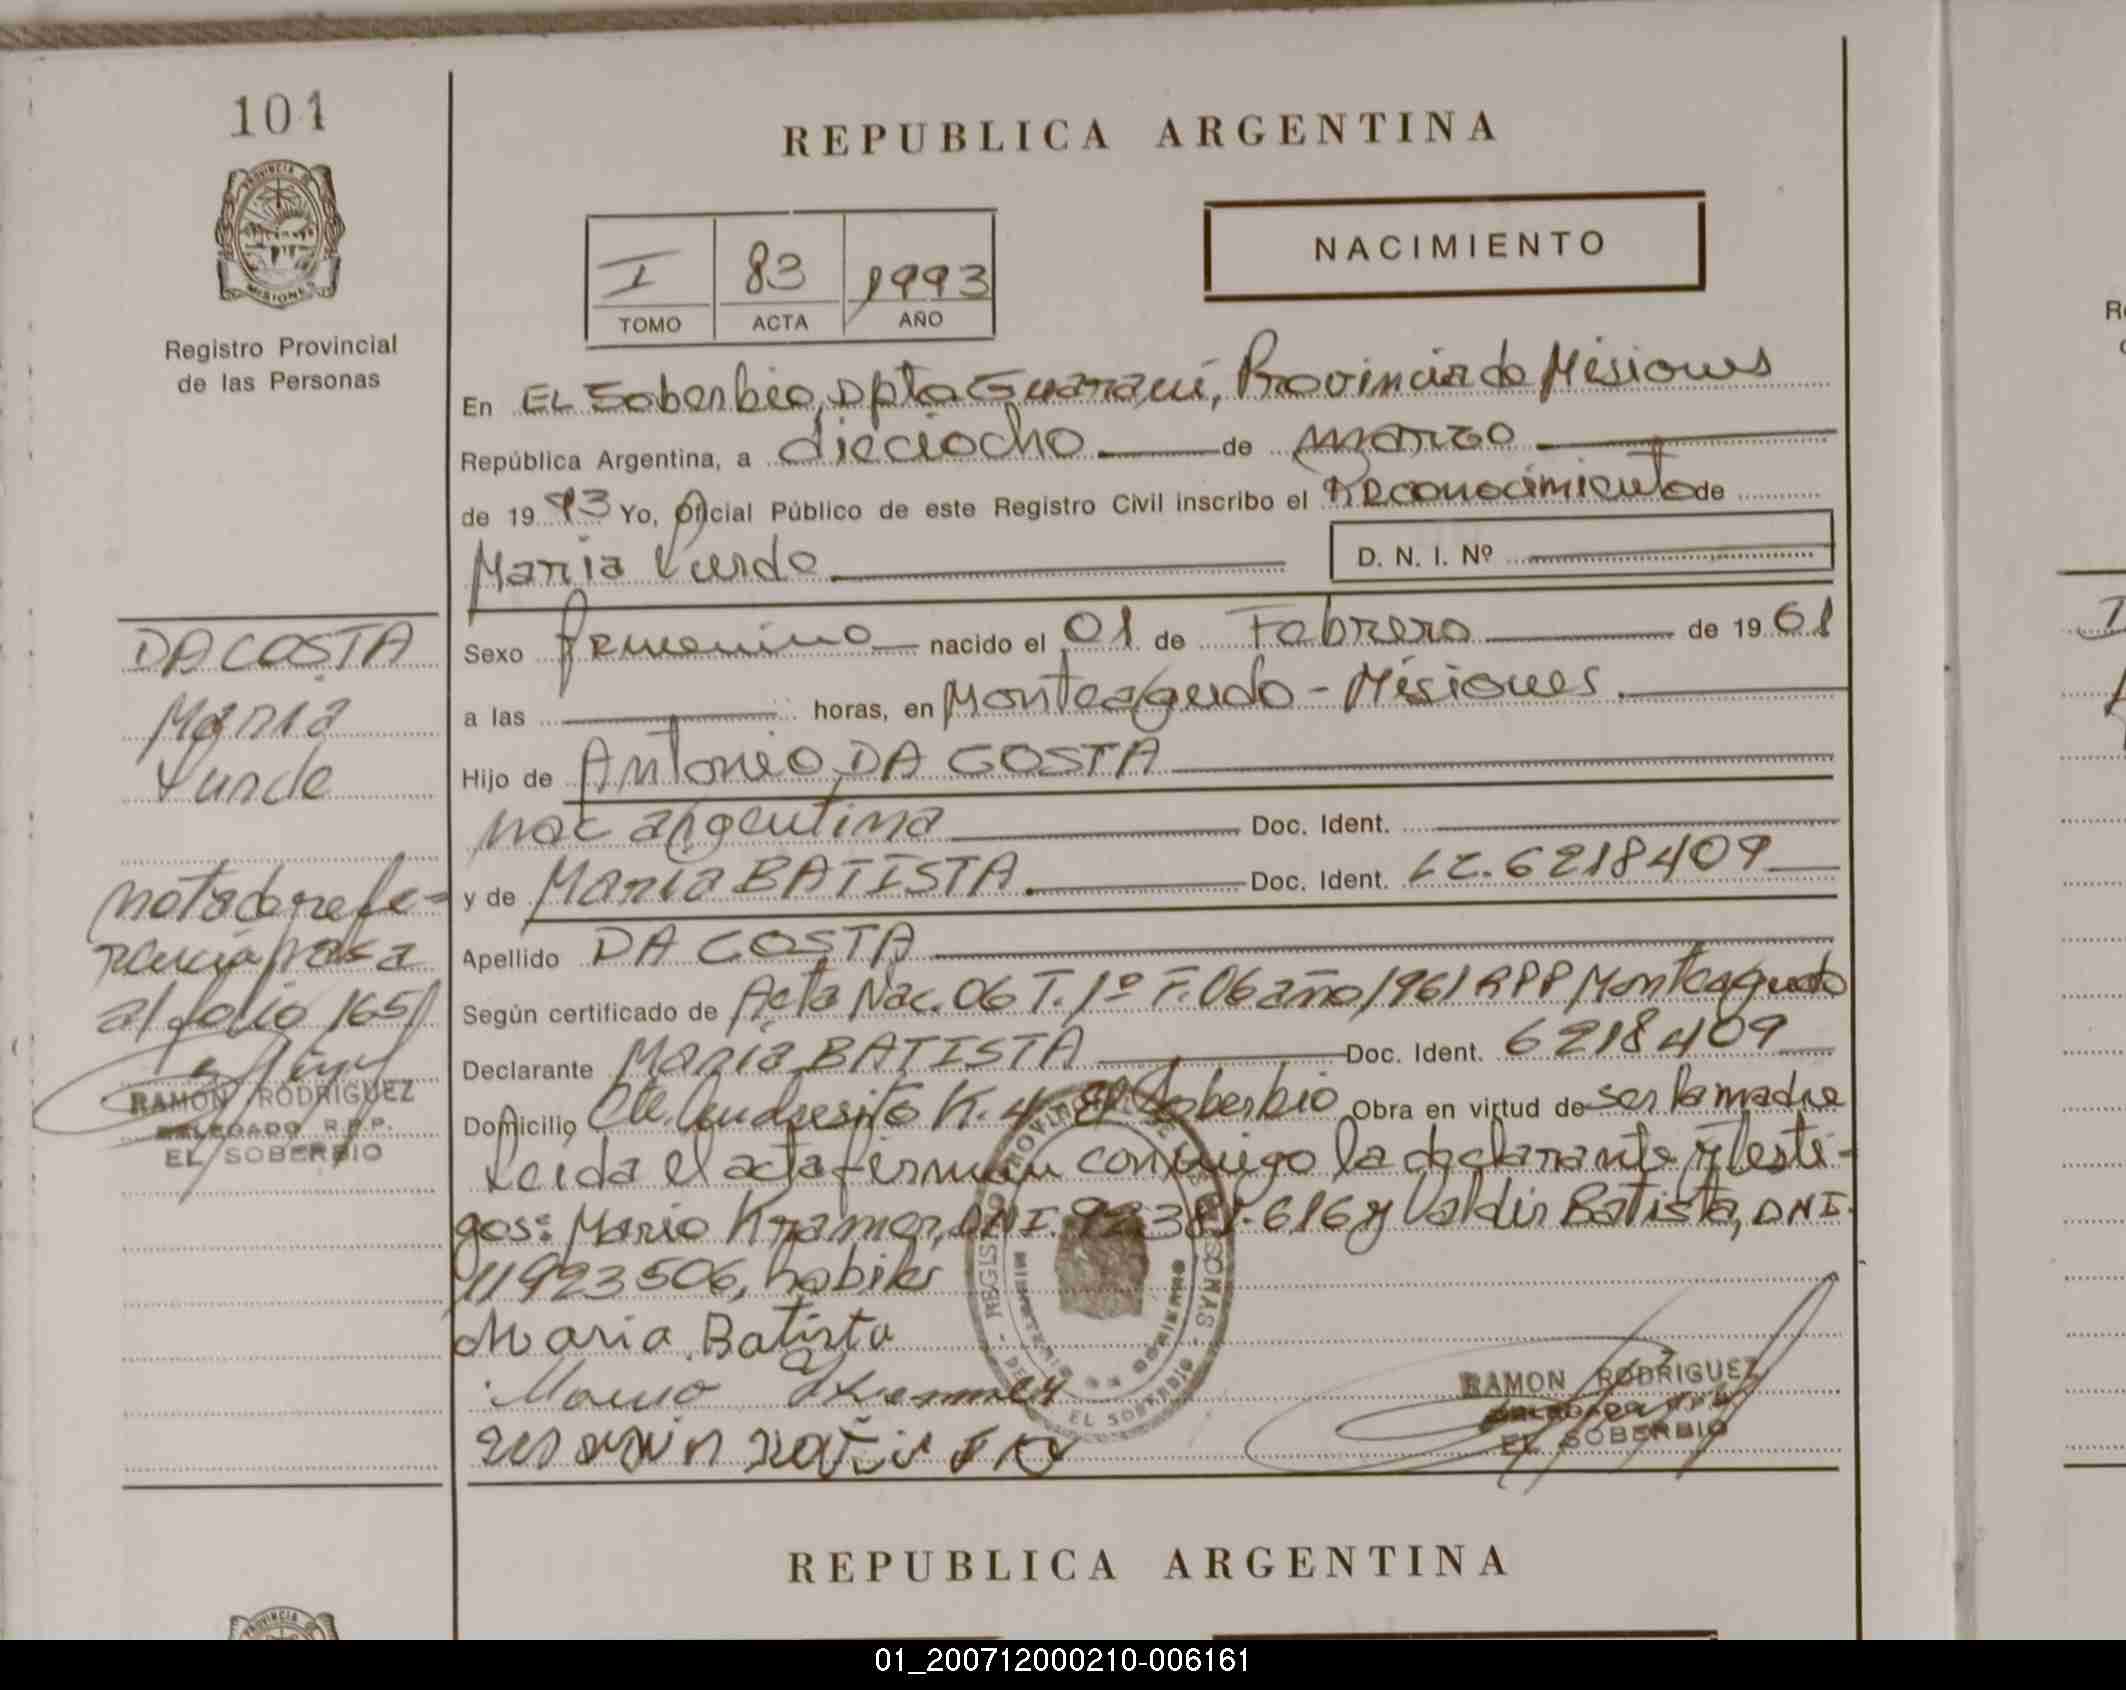 101
PROVINCIA DE
MISIONES
Registro Provincial
de las Personas
REPUBLICA ARGENTINA
I 83 1993
TOMO ACTA AÑO
NACIMIENTO
En EL Soberbio, Dpto Guaraní, Provincia de Misiones
República Argentina, a dieciocho de marzo
de 1993 Yo, Oficial Público de este Registro Civil inscribo el Reconocimiento de
Maria Lurde
D. N. I. Nº
Sexo femenino nacido el 01 de Febrero de 1961
a las horas, en Monteagudo - Misiones.
Hijo de Antonio DA COSTA
nac argentina Doc. Ident.
y de Maria BATISTA. Doc. Ident. LC. 6218409
Apellido DA COSTA
Según certificado de Acta Nac. 06 T. 1º F. 06 año 1961 RPP Monteagudo
Declarante Maria BATISTA Doc. Ident. 6218409
Domicilio Cte. Andresito K. 4 El Soberbio Obra en virtud de ser la madre
Leida el acta firman conmigo la declarante y testi-
gos: Mario Kramer, DNI. 616 y Valdir Batista, DNI.
11923506, habiles
Maria Batista
Mario
RAMON RODRIGUEZ
DELEGADO R.P.P.
EL SOBERBIO
DA COSTA
Maria
Lurde
nota de refe-
rencia pasa
al folio 165
RAMON RODRIGUEZ
DELEGADO R.P.P.
EL SOBERBIO
EL SOBERBIO
REPUBLICA ARGENTINA
PROVINCIA
01_200712000210-006161